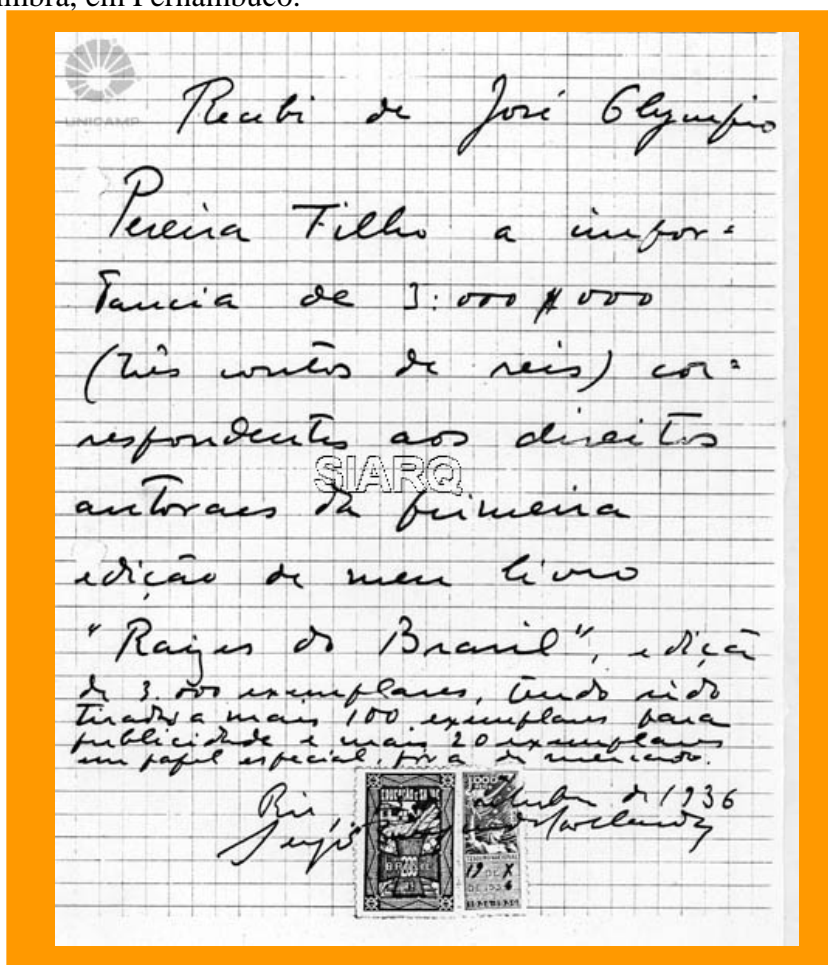 imbra, em Pernambuco.
UNICAMP
Recebi de José Olympio
Pereira Filho a impor=
tancia de 3:000$000
(três contos de reis) cor=
respondentes aos direitos
SIARQ
autoraes da primeira
edição de meu livro
"Raizes do Brasil", edição
de 3.000 exemplares, tendo sido
tirados mais 100 exemplares para
publicidade e mais 20 exemplares
em papel especial, fóra de mercado.
Rio, outubro de 1936
Sergio Buarque de Hollanda
EDUCAÇÃO E SAUDE
200
BRASIL
1000
THESOURO NACIONAL
19 DE X
DE 1936